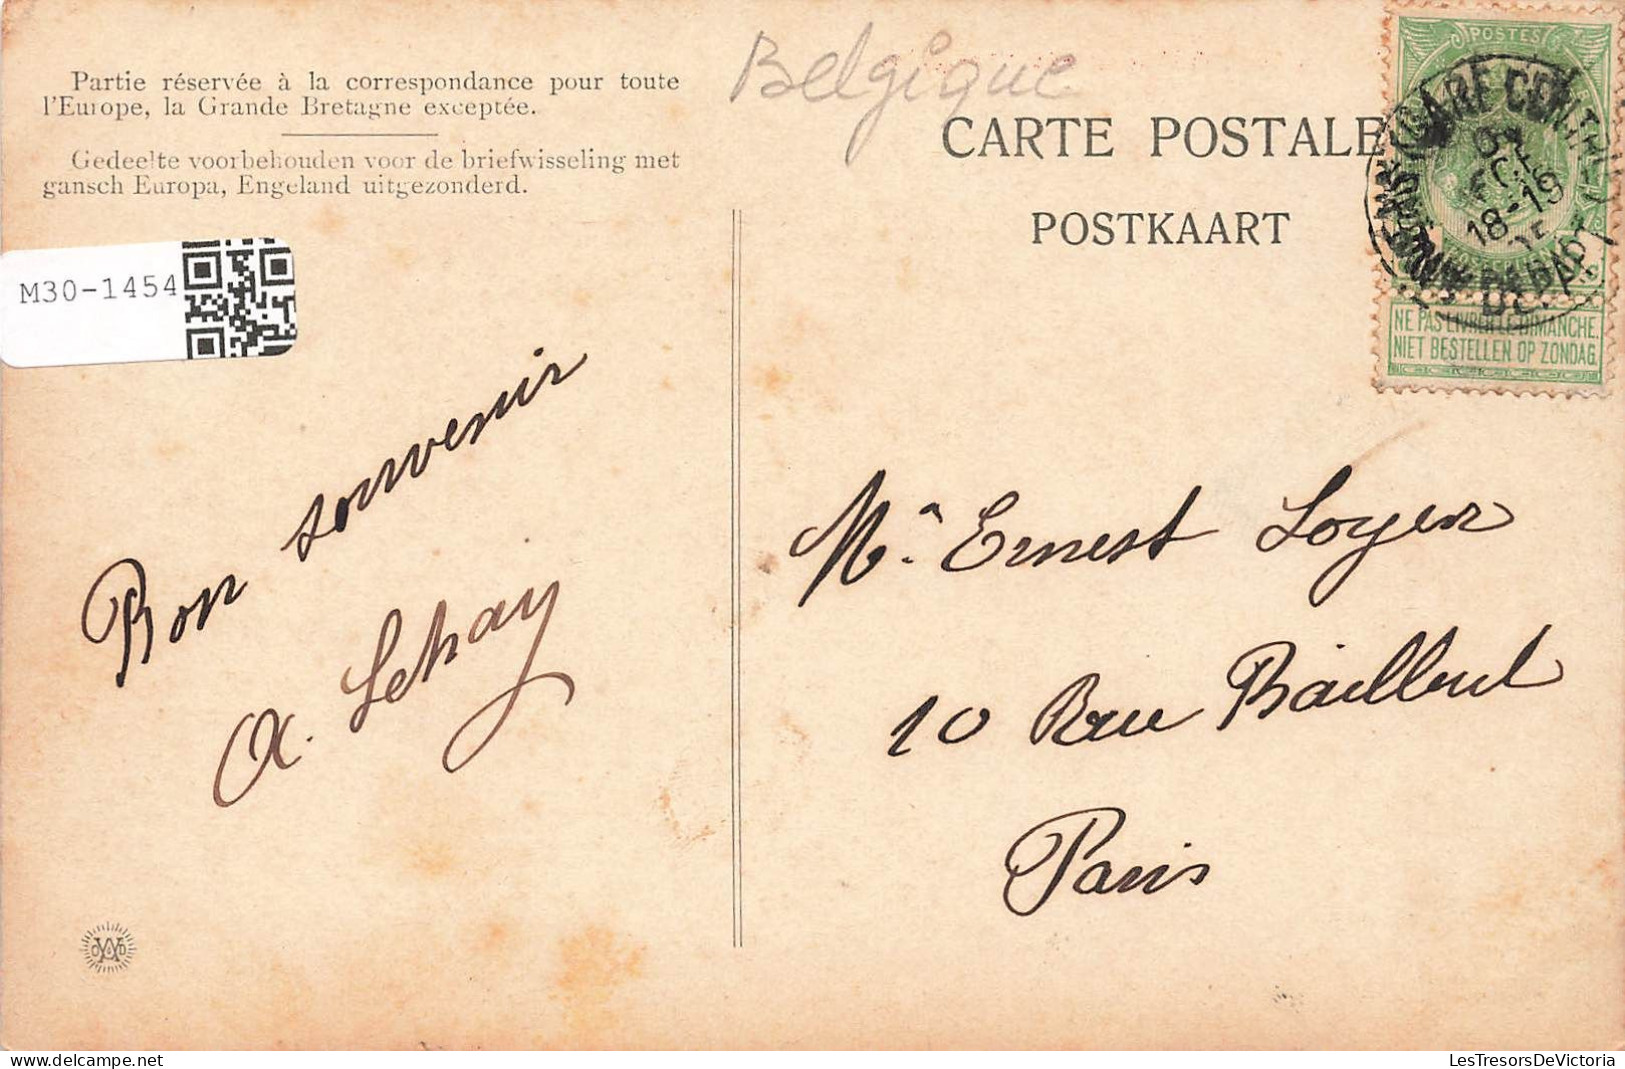 Belgique
Partie réservée à la correspondance pour toute
l'Europe, la Grande Bretagne exceptée.
Gedeelte voorbehouden voor de briefwisseling met
gansch Europa, Engeland uitgezonderd.
CARTE POSTALE
POSTKAART
POSTES
GARE CENTRALE
18-19
DEPART
NE PAS LIVRER LE DIMANCHE
NIET BESTELLEN OP ZONDAG
M30-1454
Bon souvenir
A. Lehay
Mr Ernest Loyer
10 Rue Bailleul
Paris
LesTresorsDeVictoria